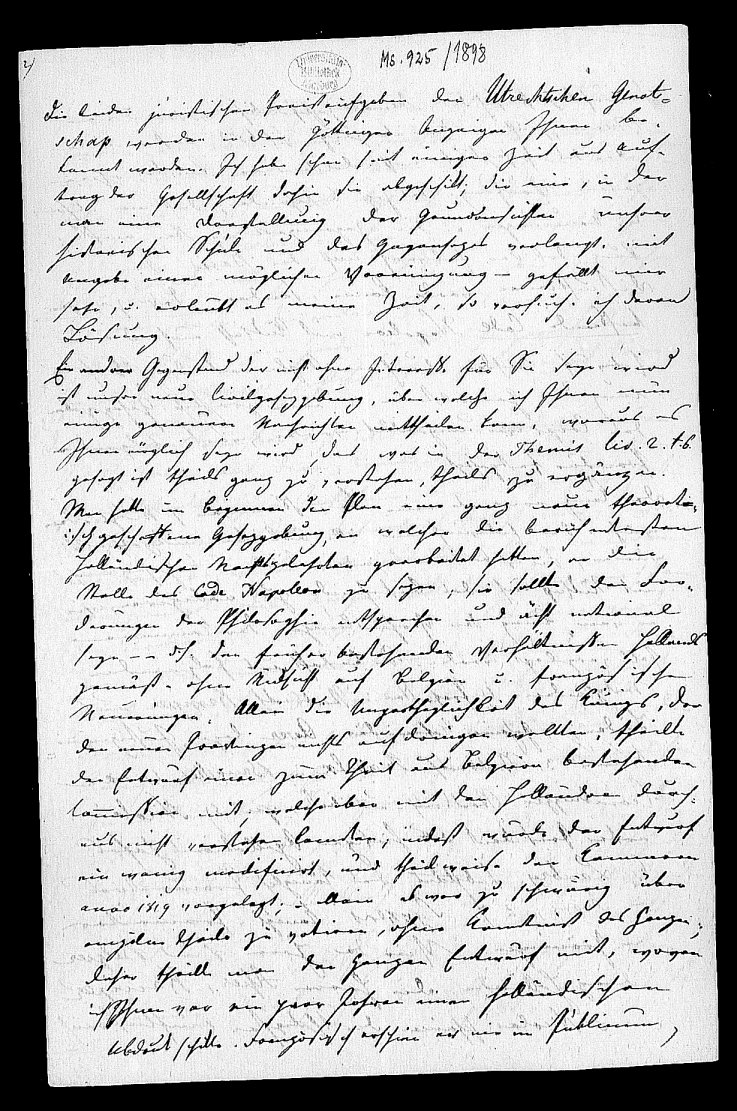 2)
Universitäts
Bibliothek
Marburg
Ms. 925/1898
Die beiden juristischen Preisaufgaben der Utrechtschen Genot-
schap werden in den Göttinger Anzeigen Ihnen be-
kannt werden. Ich habe schon seit einiger Zeit aus Auf-
trag der Gesellschaft dahin sie abgeschikt; die eine, in der
man eine Darstellung der Grundansichten unsrer
historischen Schule und des Gegensazes verlangt, mit
Angabe einer möglichen Vereinigung – gefällt mir
sehr, u. erlaubt es meine Zeit, so versuch ich deren
Lösung.
Ein andrer Gegenstand der nicht ohne Interesse für Sie seyn wird
ist unsre neue Civilgesezgebung, über welche ich Ihnen nun
einige genauere Nachrichten mittheilen kann, woraus es
Ihnen möglich seyn wird, das was in der Themis liv. 2. t. 6.
gesagt ist theils ganz zu verstehen, theils zu ergänzen.
Man hatte im Beginnen den Plan eine ganz neue theoret-
isch geschaffene Gesezgebung, an welcher die berühmtesten
Holländischen Rechtsgelehrten gearbeitet hatten, an die
Stelle des Code Napoleon zu sezen, sie sollte den For-
derungen der Philosophie entsprechen und ächt national
seyn – d.h. den früher bestehenden Verhältnissen Hollands
gemäß – ohne Rüksicht auf Belgien u. französische
Neuerungen. Allein die Unpartheylichkeit des Königs, der
den neuen Provinzen nichts aufdringen wollte, theilte
den Entwurf einer zum Theil aus Belgiern bestehenden
Commission mit, welche aber mit den Holländern durch-
aus nicht verstehen konnten, indeß wurde der Entwurf
ein wenig modificirt, und theilweise den Kammern
anno 1819 vorgelegt; – Allein es war zu schwierig über
einzelne Theile zu votiren, ohne Kenntniß des Ganzen;
daher theilte man den ganzen Entwurf mit, wovon
ich Ihnen vor ein paar Jahren einen holländischen
Abdruk schikte. Französisch erschien er nie im Publicum,